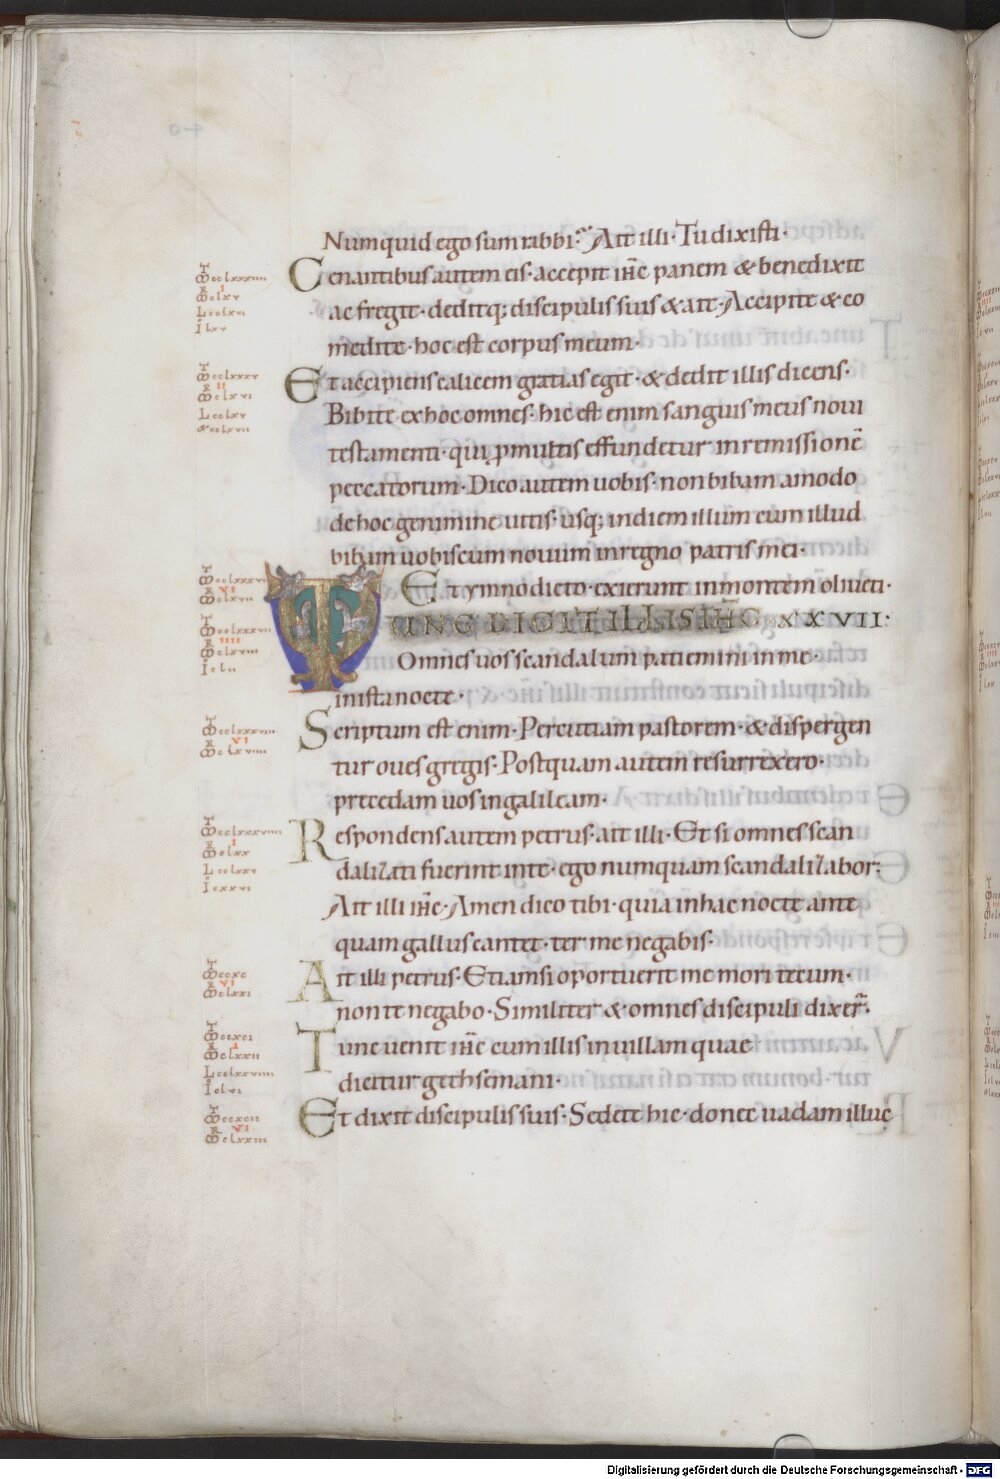 Numquid ego sum rabbi· Ait illi· Tu dixisti·
Cenantibus autem eis· accepit ihc panem & benedixit
ac fregit· deditq; discipulis suis & ait· Accipite & co
medite· hoc est corpus meum·
Et accipiens calicem gratias egit· & dedit illis dicens·
Bibite ex hoc omnes· hic est enim sanguis meus noui
testamenti· qui ꝓ multis effundetur in remissionē
peccatorum· Dico autem uobis· non bibam amodo
de hoc genimine uitis· usq; in diem illum cum illud
bibam uobiscum nouum in regno patris mei·
Et ymno dicto· exierunt in montem oliueti·
TUNC DICIT ILLIS IHC XXVII·
Omnes uos scandalum patiemini in me·
in ista nocte·
Scriptum est enim· Percutiam pastorem· & dispergen
tur oues gregis· Postquam autem resurrexero·
precedam uos in galileam·
Respondens autem petrus· ait illi· Et si omnes scan
dalizati fuerint in te· ego numquam scandalizabor:
Ait illi ihc· Amen dico tibi· quia in hac nocte ante
quam gallus cantet· ter me negabis·
Ait illi petrus· Etiamsi oportuerit me mori tecum·
non te negabo· Similiter & omnes discipuli dixer̄·
Tunc uenit ihc cum illis in uillam quae
dicitur gethsemani·
Et dixit discipulis suis· Sedete hic· donec uadam illuc
Digitalisierung gefördert durch die Deutsche Forschungsgemeinschaft - DFG